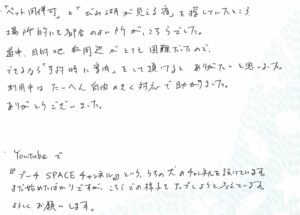 "ペット同伴可"と"びわ湖が見える宿"を探していたところ
場所的にも都合のいい所がこちらでした。
道中、目的地周辺がとても困難だったので、
できるなら"予約時に案内"をして頂けるとありがたいと思いました。
利用中はたいへん自由のきく対応で助かりました。
ありがとうございました。
Youtubeで
『プーチSPACEチャンネル』という、うちの犬のチャンネルを設けています。
まだ始めたばかりですが、こちらでの様子もアップしようと
よろしくお願いします。